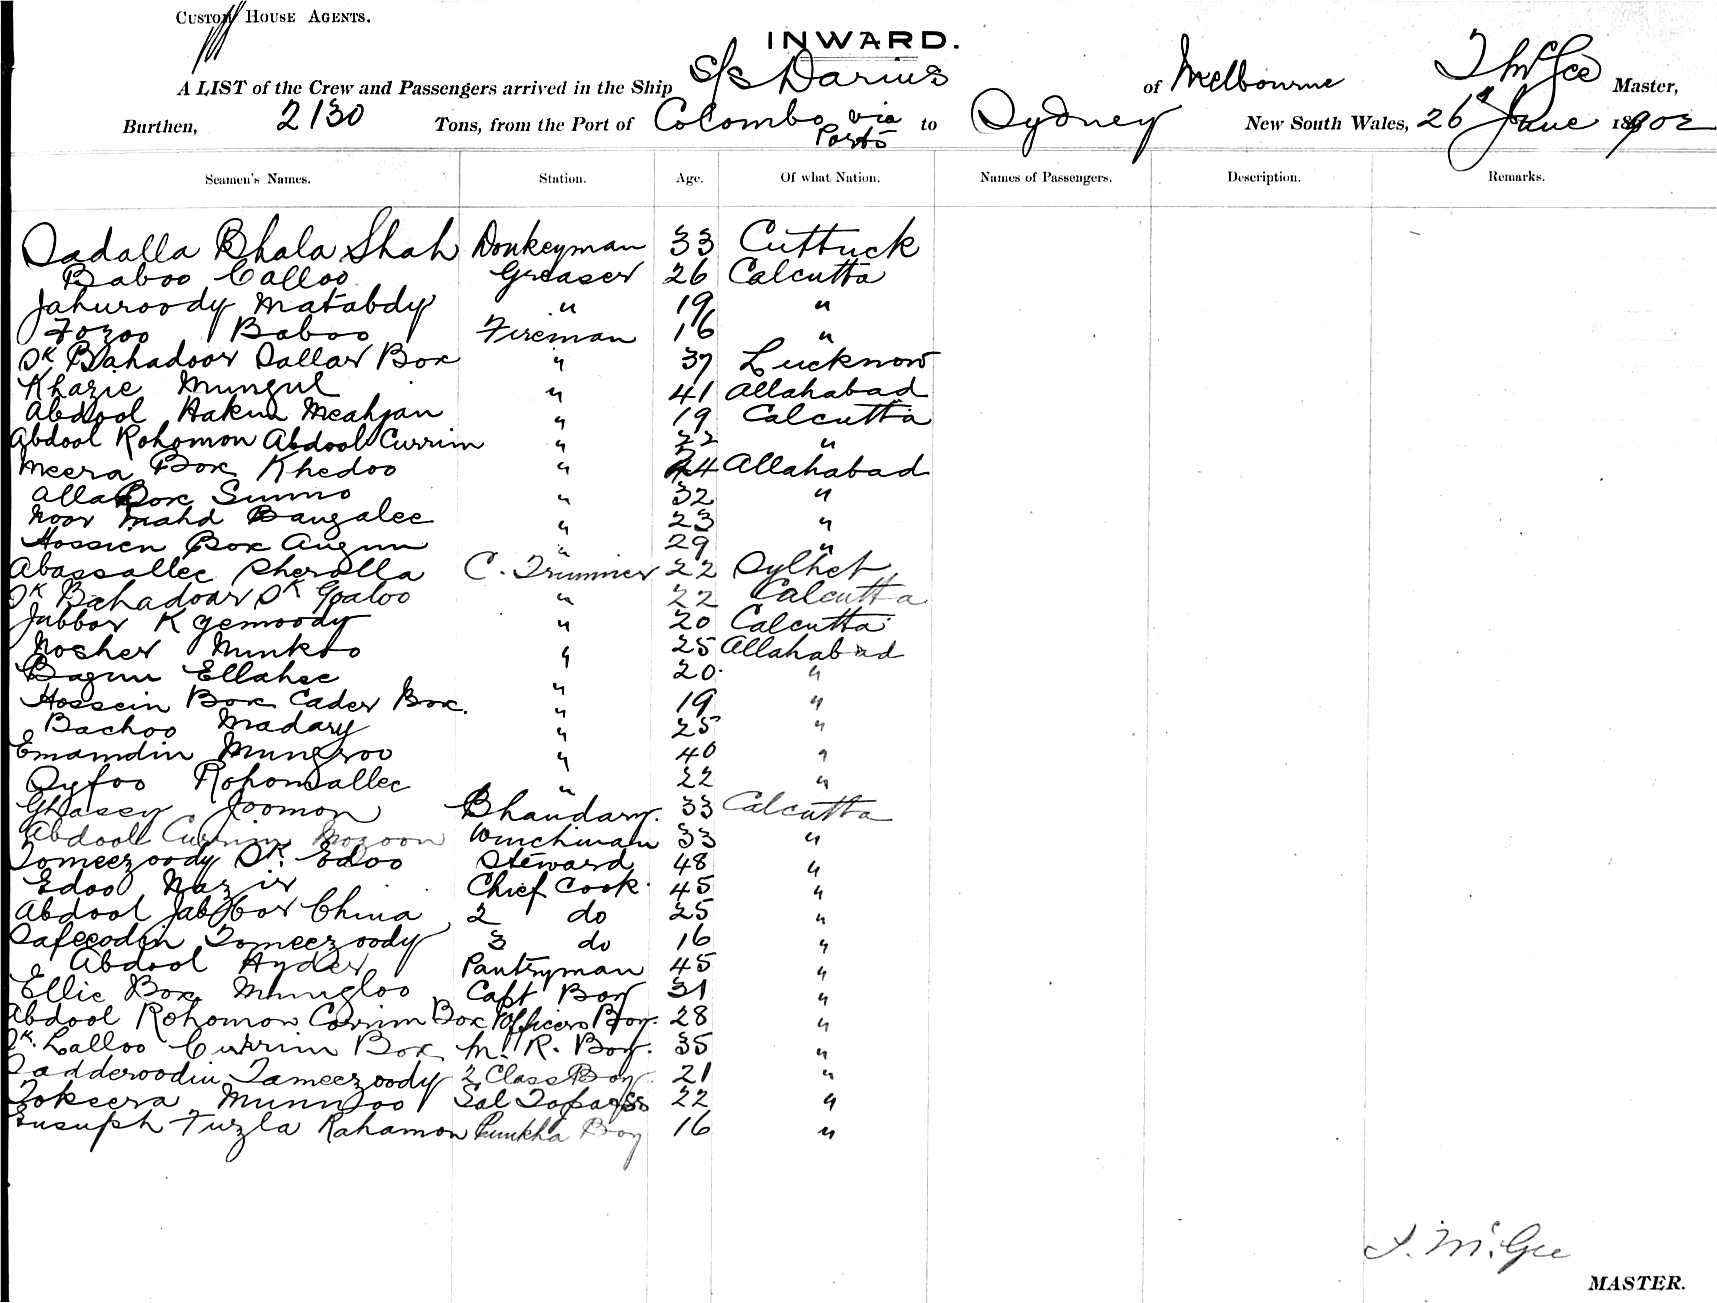 CUSTOM HOUSE AGENTS.
INWARD.
A LIST of the Crew and Passengers arrived in the Ship S/S Darius of Melbourne T McGee Master,
Burthen, 2130 Tons, from the Port of Colombo via Ports to Sydney New South Wales, 26th June 1902
Seamen's Names. Station. Age. Of what Nation. Names of Passengers. Description. Remarks.
Sadalla Bhala Shah Donkeyman 33 Cuttuck
Baboo Calloo Greaser 26 Calcutta
Jahuroody Matabdy " 19 "
Fozoo Baboo Fireman 16 "
Sk Bahadoor Sallar Box " 37 Lucknow
Khazie Mungul " 41 Allahabad
Abdool Hakim Meahjan " 19 Calcutta
Abdool Rohomon Abdool Currim " 22 "
Meera Box Khedoo " 24 Allahabad
Alla Box Sumo " 32 "
Noor Mahd Bangalee " 23 "
Hossien Box " 29 "
Abassallee Sheralla C. Trimmer 22 Sylhet
Sk Bahadoar Sk Goaloo " 22 Calcutta
Jubbar K " 20 Calcutta
Nosher " 25 Allahabad
Ellahee " 20 "
Hossein Box Cader Box. " 19 "
Bachoo Madary " 25 "
Emamdin Mungroo " 40 "
Syfoo Rohomallee " 22 "
Ghasey Joomon Bhandary. 33 Calcutta
Abdool Currim Mozoon Winchman 33 "
Tomeezoody Sk. Edoo Steward 48 "
Edoo Nazir Chief Cook. 45 "
Abdool Jabbor China 2 do 25 "
Safeeodin Tomeezoody 3 do 16 "
Abdool Hyder Pantryman 45 "
Ellie Box Mungloo Capt Boy 31 "
Abdool Rohomon Corrim Box Officers Boy. 28 "
Sk. Lalloo Currim Box M. R. Boy. 35 "
Sadderoodin Tameezoody 2 Class Boy 21 "
Tokeera Sal Topass 22 "
Eusuph Fuzla Rahamon Punkha Boy 16 "
T. McGee
MASTER.